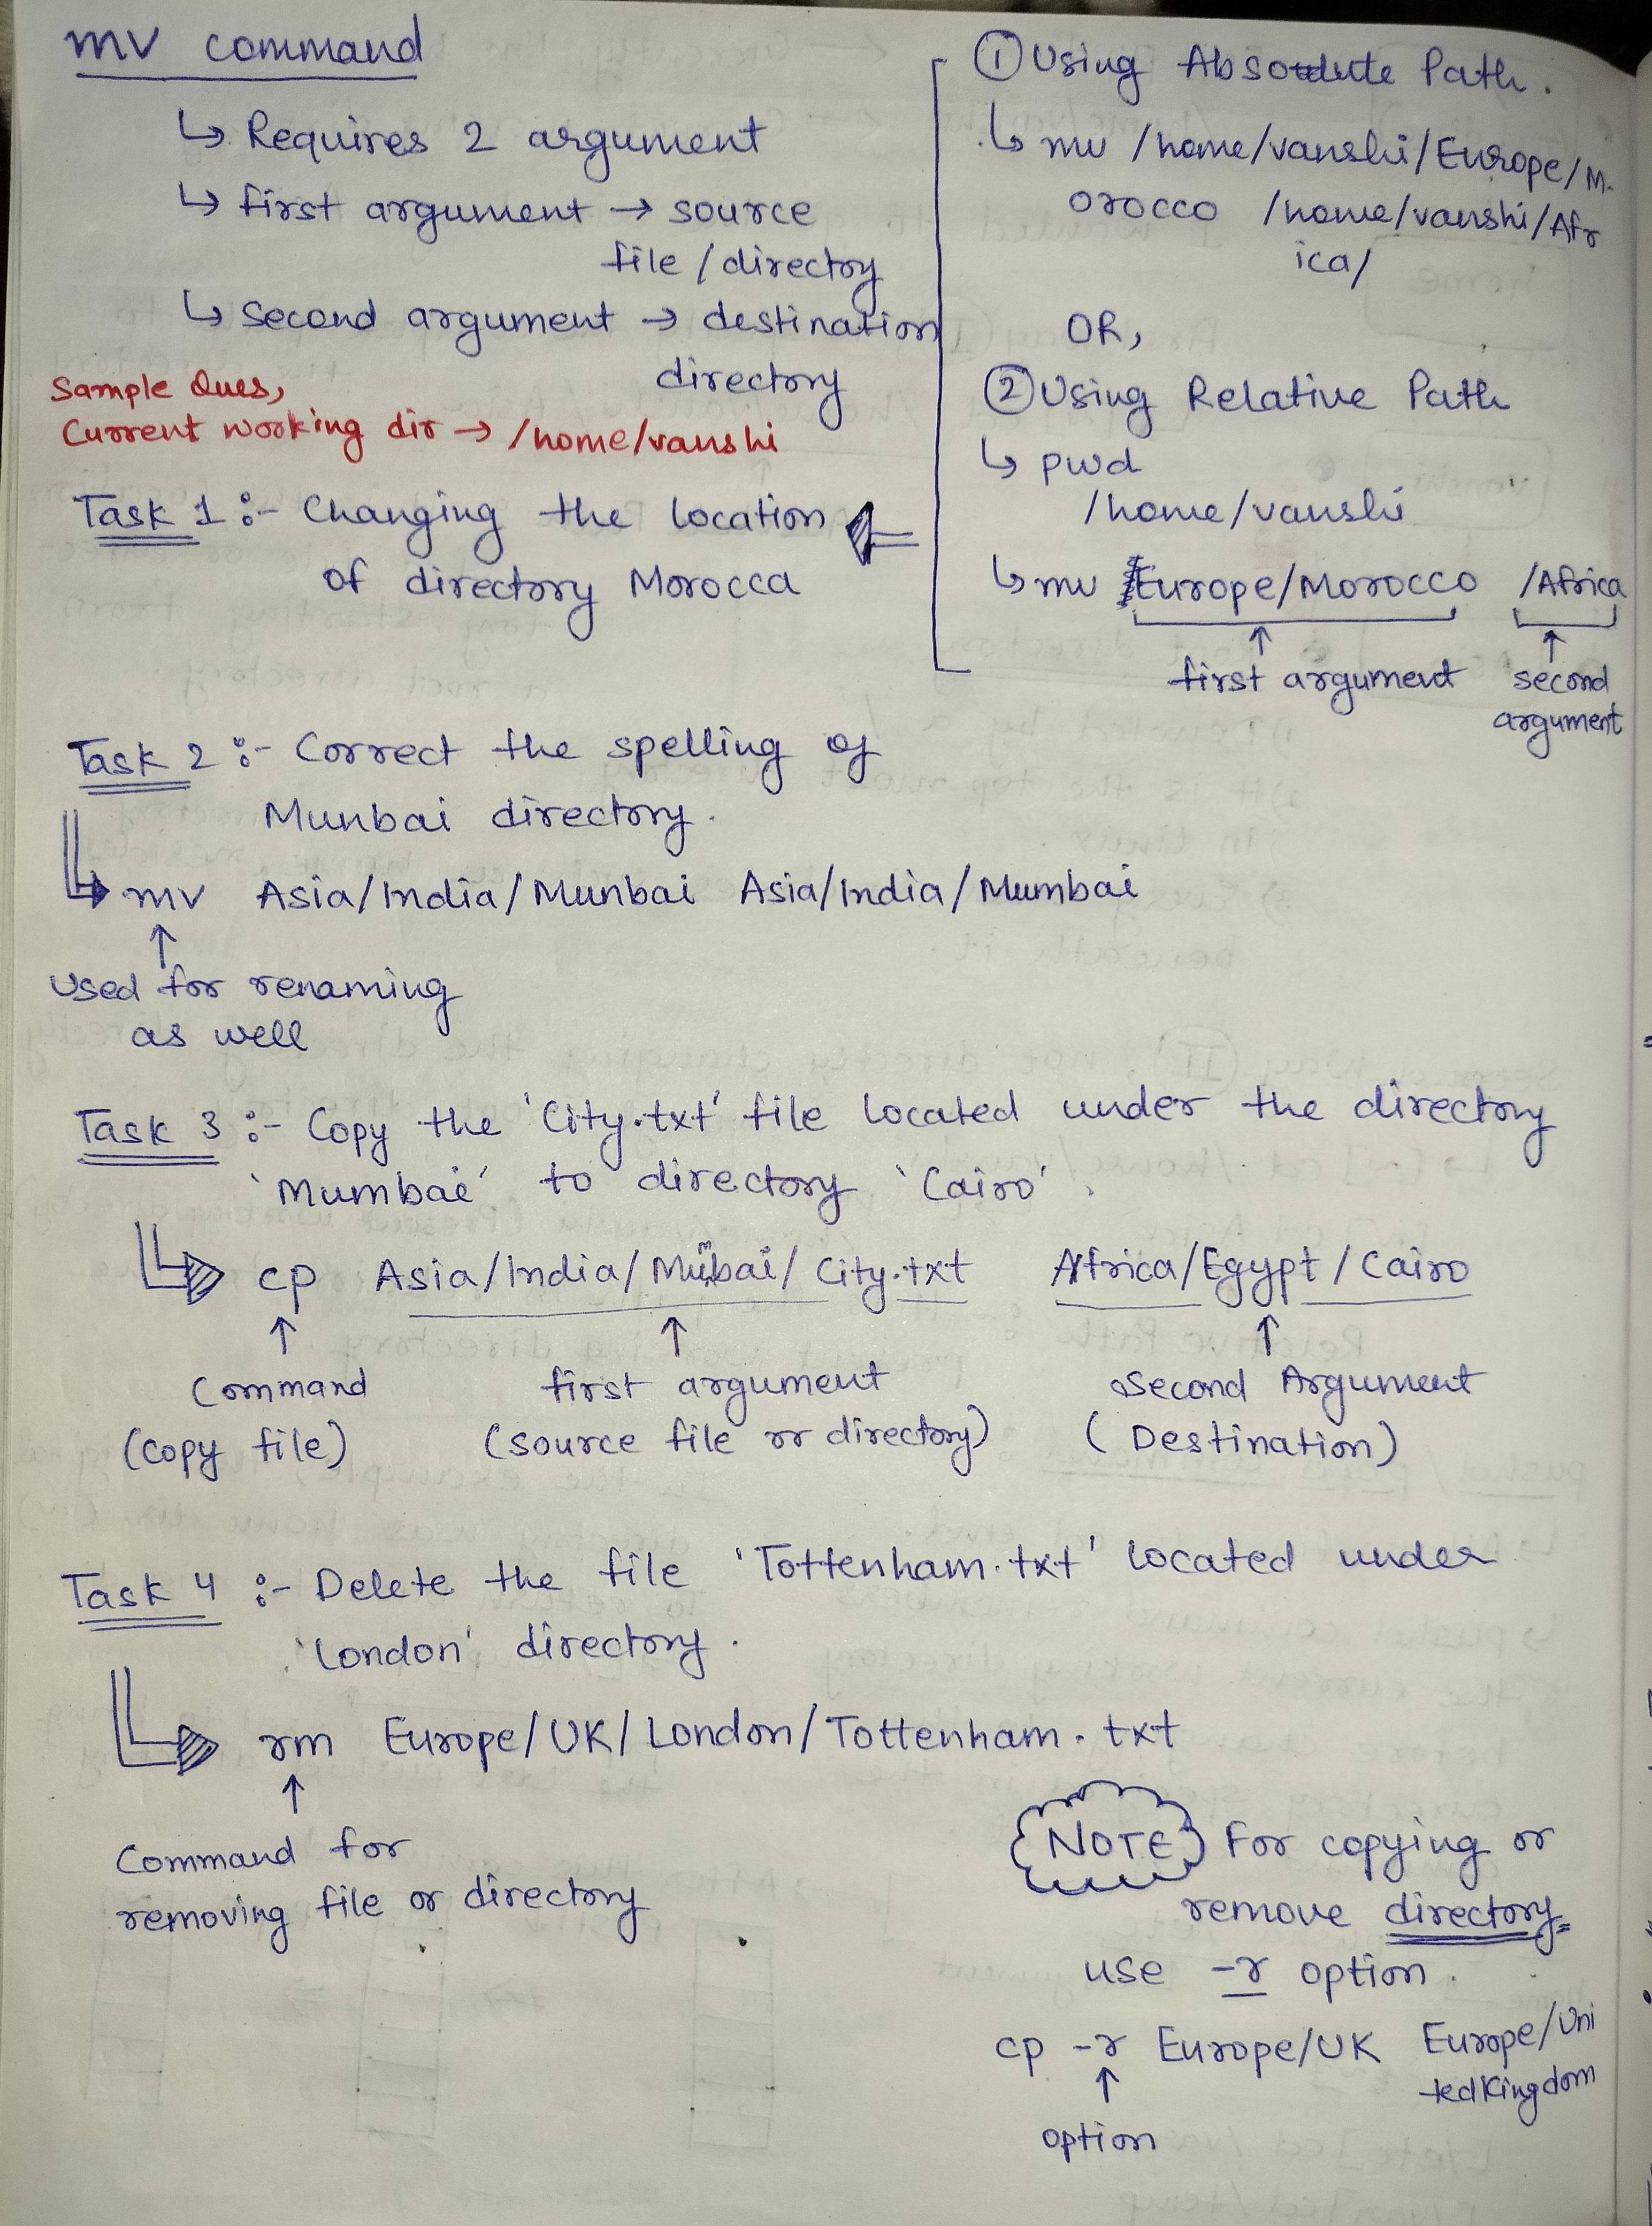 mv command
↳ Requires 2 argument
↳ first argument → source
file / directory
↳ second argument → destination
directory
Sample Ques,
Current working dir → /home/vanshi
Task 1 :- Changing the location
of directory Morocca
① Using Absolute Path.
↳ mv /home/vanshi/Europe/M-
orocco /home/vanshi/Afr
ica/
OR,
② Using Relative Path
↳ pwd
/home/vanshi
↳ mv Europe/Morocco /Africa
first argument second
argument
Task 2 :- Correct the spelling of
Munbai directory.
mv Asia/India/Munbai Asia/India/Mumbai
used for renaming
as well
Task 3 :- Copy the 'City.txt' file located under the directory
'Mumbai' to directory 'Cairo'.
cp Asia/India/Mumbai/City.txt Africa/Egypt/Cairo
Command first argument Second Argument
(copy file) (source file or directory) (Destination)
Task 4 :- Delete the file 'Tottenham.txt' located under
'London' directory.
rm Europe/UK/London/Tottenham.txt
Command for
removing file or directory
NOTE For copying or
remove directory
use -r option.
cp -r Europe/UK Europe/Uni
tedKingdom
option